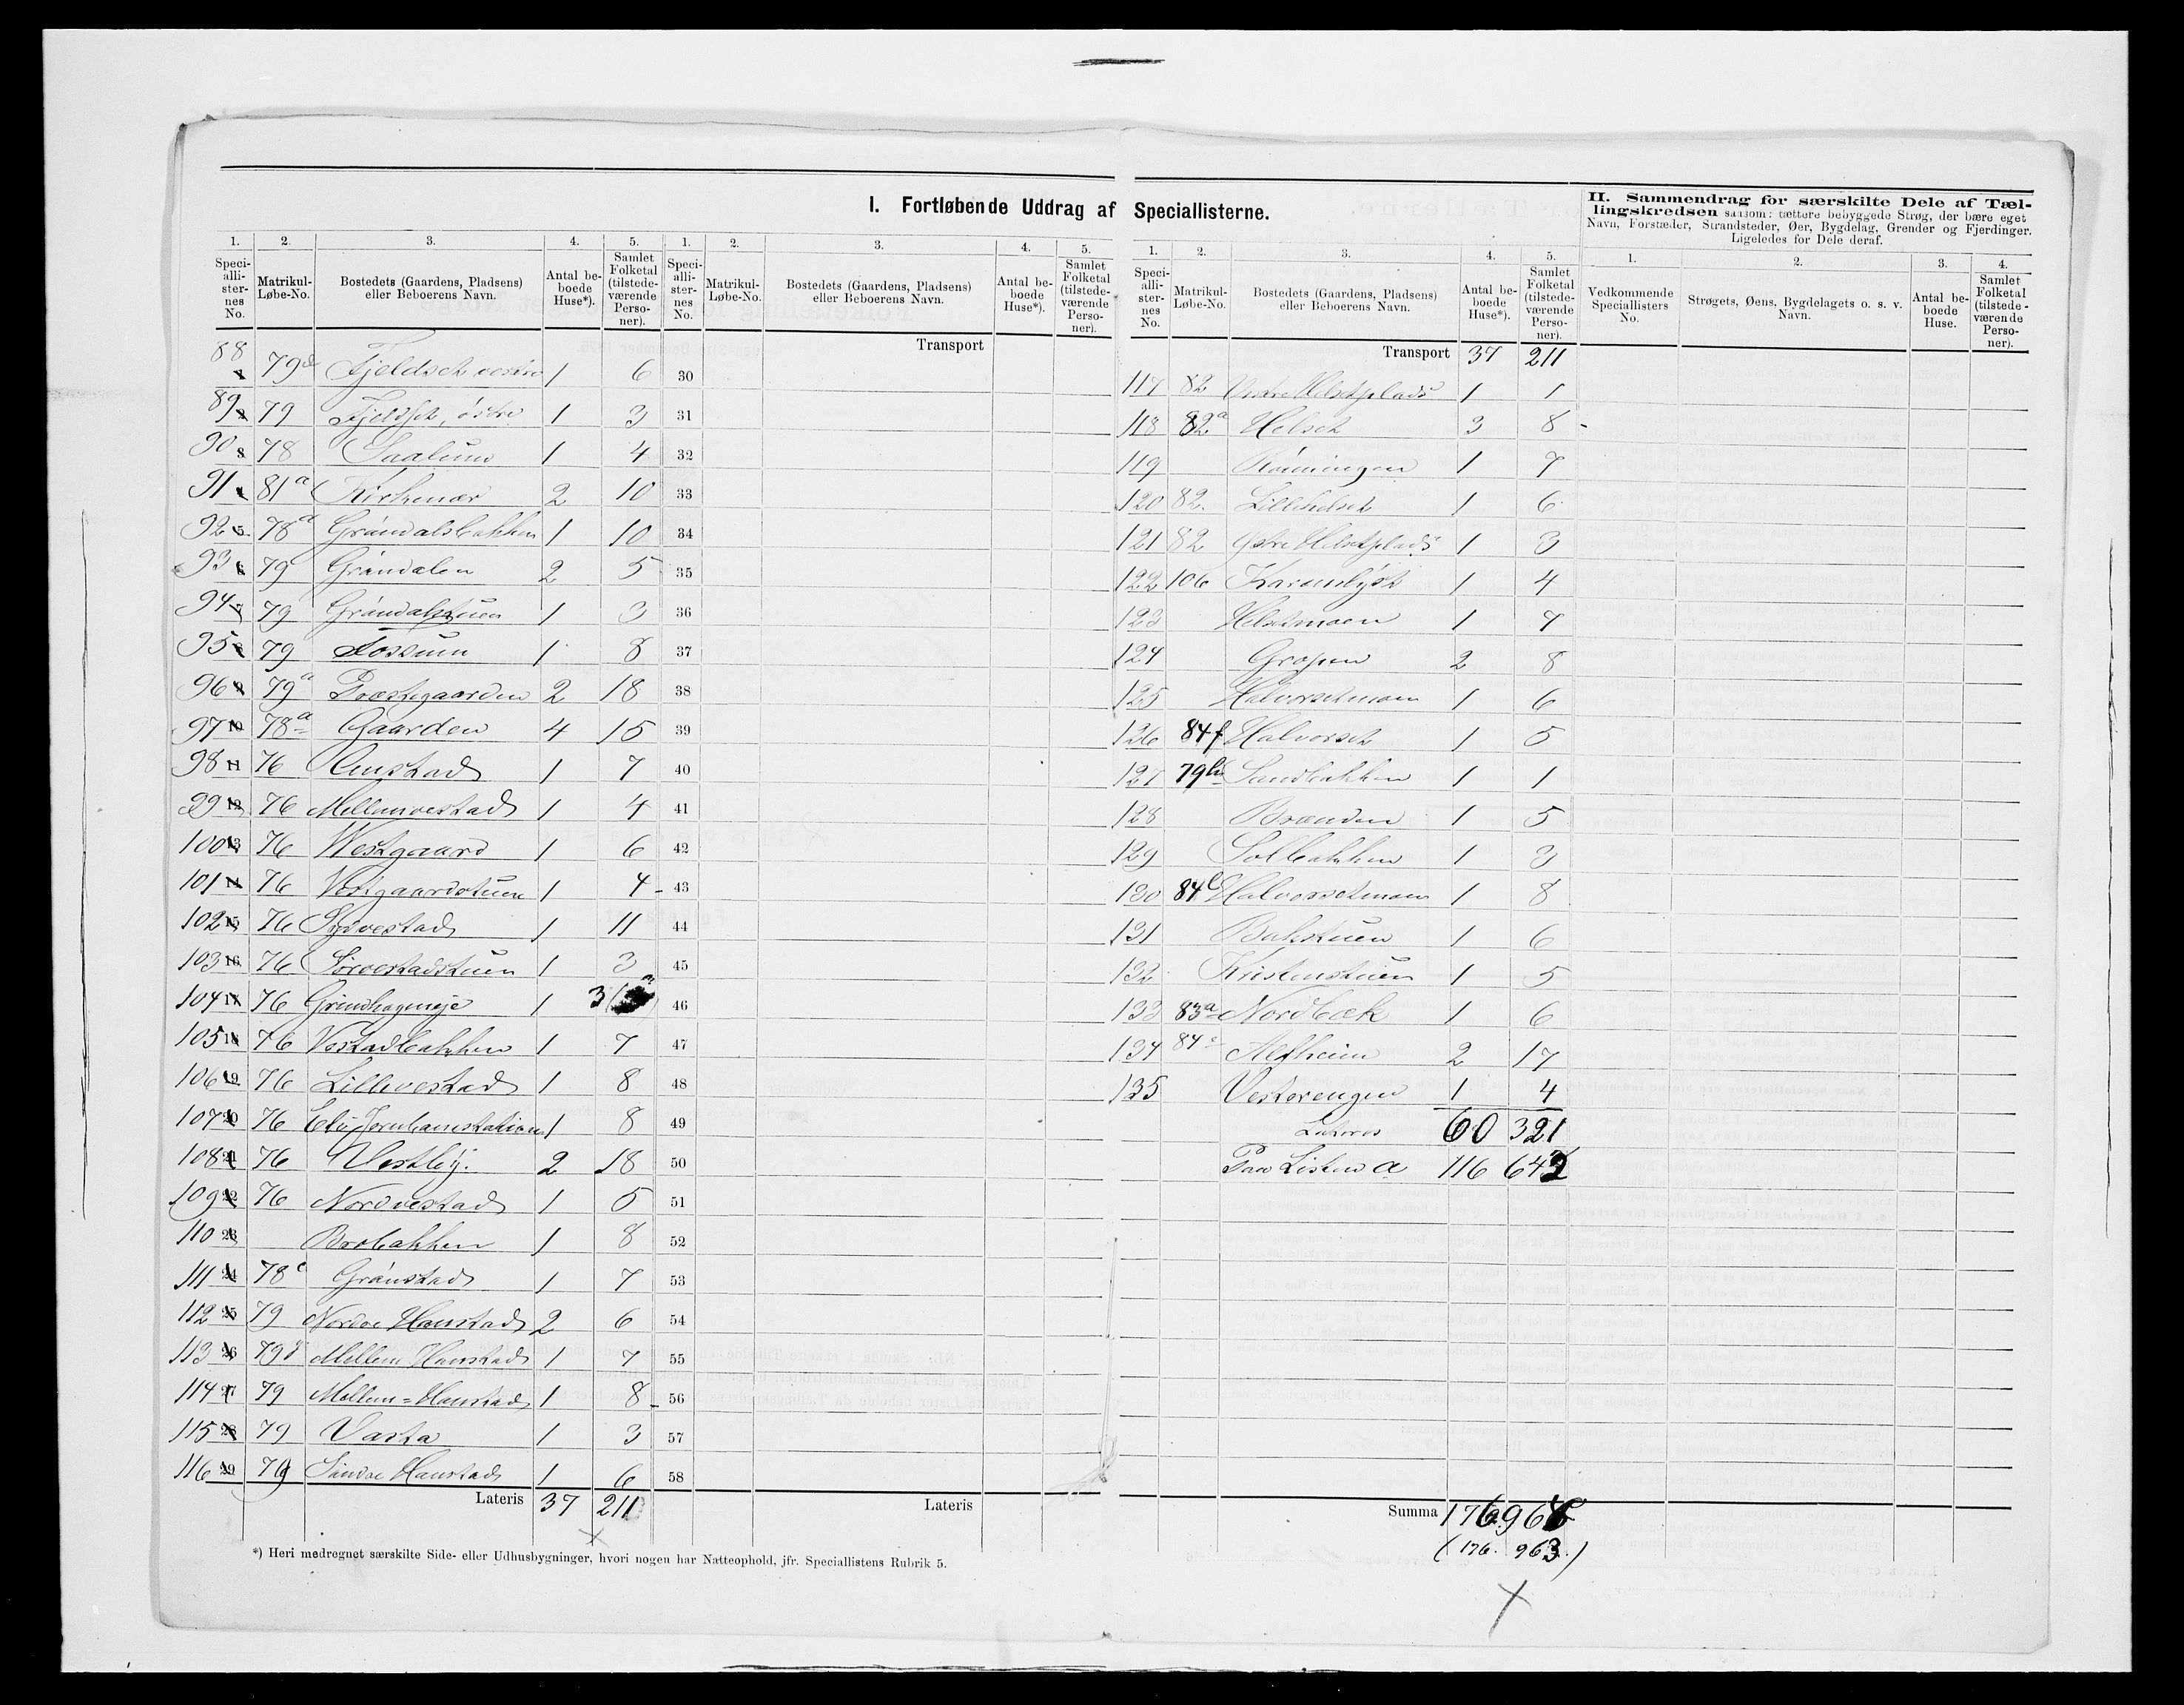 I. Fortløbende Uddrag af Speciallisterne.
II. Sammendrag for særskilte Dele af Tællingskredsen saasom: tættere bebyggede Strøg, der bære eget
Navn, Forstæder, Strandsteder, Øer, Bygdelag, Grender og Fjerdinger.
Ligeledes for Dele deraf.
1. 2. 3. 4. 5. 1. 2. 3. 4. 5.
Specialli-sternes No. Matrikul-Løbe-No. Bostedets (Gaardens, Pladsens) eller Beboerens Navn. Antal beboede Huse*). Samlet Folketal (tilstedeværende Personer).
Specialli-sternes No. Matrikul-Løbe-No. Bostedets (Gaardens, Pladsens) eller Beboerens Navn. Antal beboede Huse*). Samlet Folketal (tilstedeværende Personer).
Transport
88 1 79 Fjeldset vestre 1 6 30
89 2 79 Fjeldset, østre 1 3 31
90 3 78 Saalund 1 4 32
91 4 81a Kirkenær 2 10 33
92 5 78a Gröndalsbakken 1 10 34
93 6 79 Gröndalen 2 5 35
94 7 79 Gröndalstuen 1 3 36
95 8 79 Fossum 1 8 37
96 9 79a Præstegaarden 2 18 38
97 10 78a Gaarden 4 15 39
98 11 76 1 7 40
99 12 76 Mellemvestad 1 4 41
100 13 76 Westgaard 1 6 42
101 14 76 Vestgaardstuen 1 4 43
102 15 76 1 11 44
103 16 76 Sørvestadstuen 1 3 45
104 17 76 Grindhagenеje 1 3 46
105 18 76 Vestadbakken 1 7 47
106 19 76 Lillevestad 1 8 48
107 20 76 Jernbanestation 1 8 49
108 21 76 Vestby. 2 18 50
109 22 76 Nordvestad 1 5 51
110 23 Brobakken 1 8 52
111 24 78c Grönstad 1 7 53
112 25 79 Nordre Hanstad 2 6 54
113 26 79 Mellem Hanstad 1 7 55
114 27 79 Mellem=Hanstad 1 8 56
115 28 79 Vasta 1 3 57
116 29 79 Söndre Hanstad 1 6 58
Lateris 37 211 Lateris
*) Heri medregnet særskilte Side- eller Udhusbygninger, hvori nogen har Natteophold, jfr. Speciallistens Rubrik 5.
1. 2. 3. 4. 5. 1. 2. 3. 4.
Specialli-sternes No. Matrikul-Løbe-No. Bostedets (Gaardens, Pladsens) eller Beboerens Navn. Antal beboede Huse*). Samlet Folketal (tilstedeværende Personer).
Vedkommende Speciallisters No. Strøgets, Øens, Bygdelagets o. s. v. Navn. Antal beboede Huse. Samlet Folketal (tilstedeværende Personer).
Transport 37 211
117 82 Vestre Helsetplads 1 1
118 82a Helset 3 8
119 Rönningen 1 7
120 82. Lillehelset 1 6
121 82 Østre Helsetplads 1 3
122 106 Karenslyst 1 4
123 Helsetmoen 1 7
124 Gropen 2 8
125 Halvorsetmoen 1 6
126 84f Halvorset 1 5
127 79 Sandbakken 1 1
128 Brænden 1 5
129 Solbakken 1 3
130 84 Halvorsetmoen 1 8
131 Bakstuen 1 6
132 Kristenstuen 1 5
133 83a Nordbæk 1 6
134 84 Alfheim 2 17
135 Vesterengen 1 4
Lateris 60 321
Paa Listen a 116 642
Summa 176
(176. 963.)